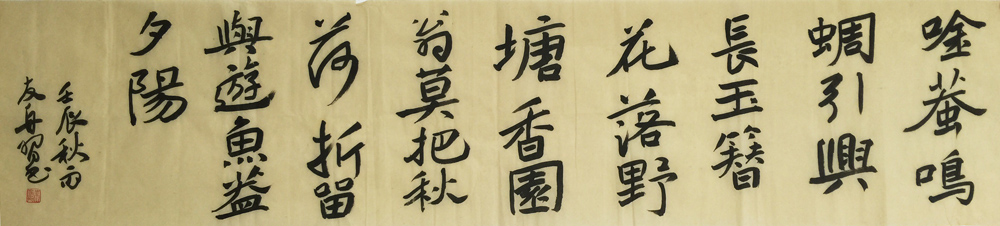 唫蛬鳴
蜩引興
長玉簪
花落野
塘香園
翁莫把秋
荷折留
與遊魚蓋
夕陽
壬辰秋雨
友舟習